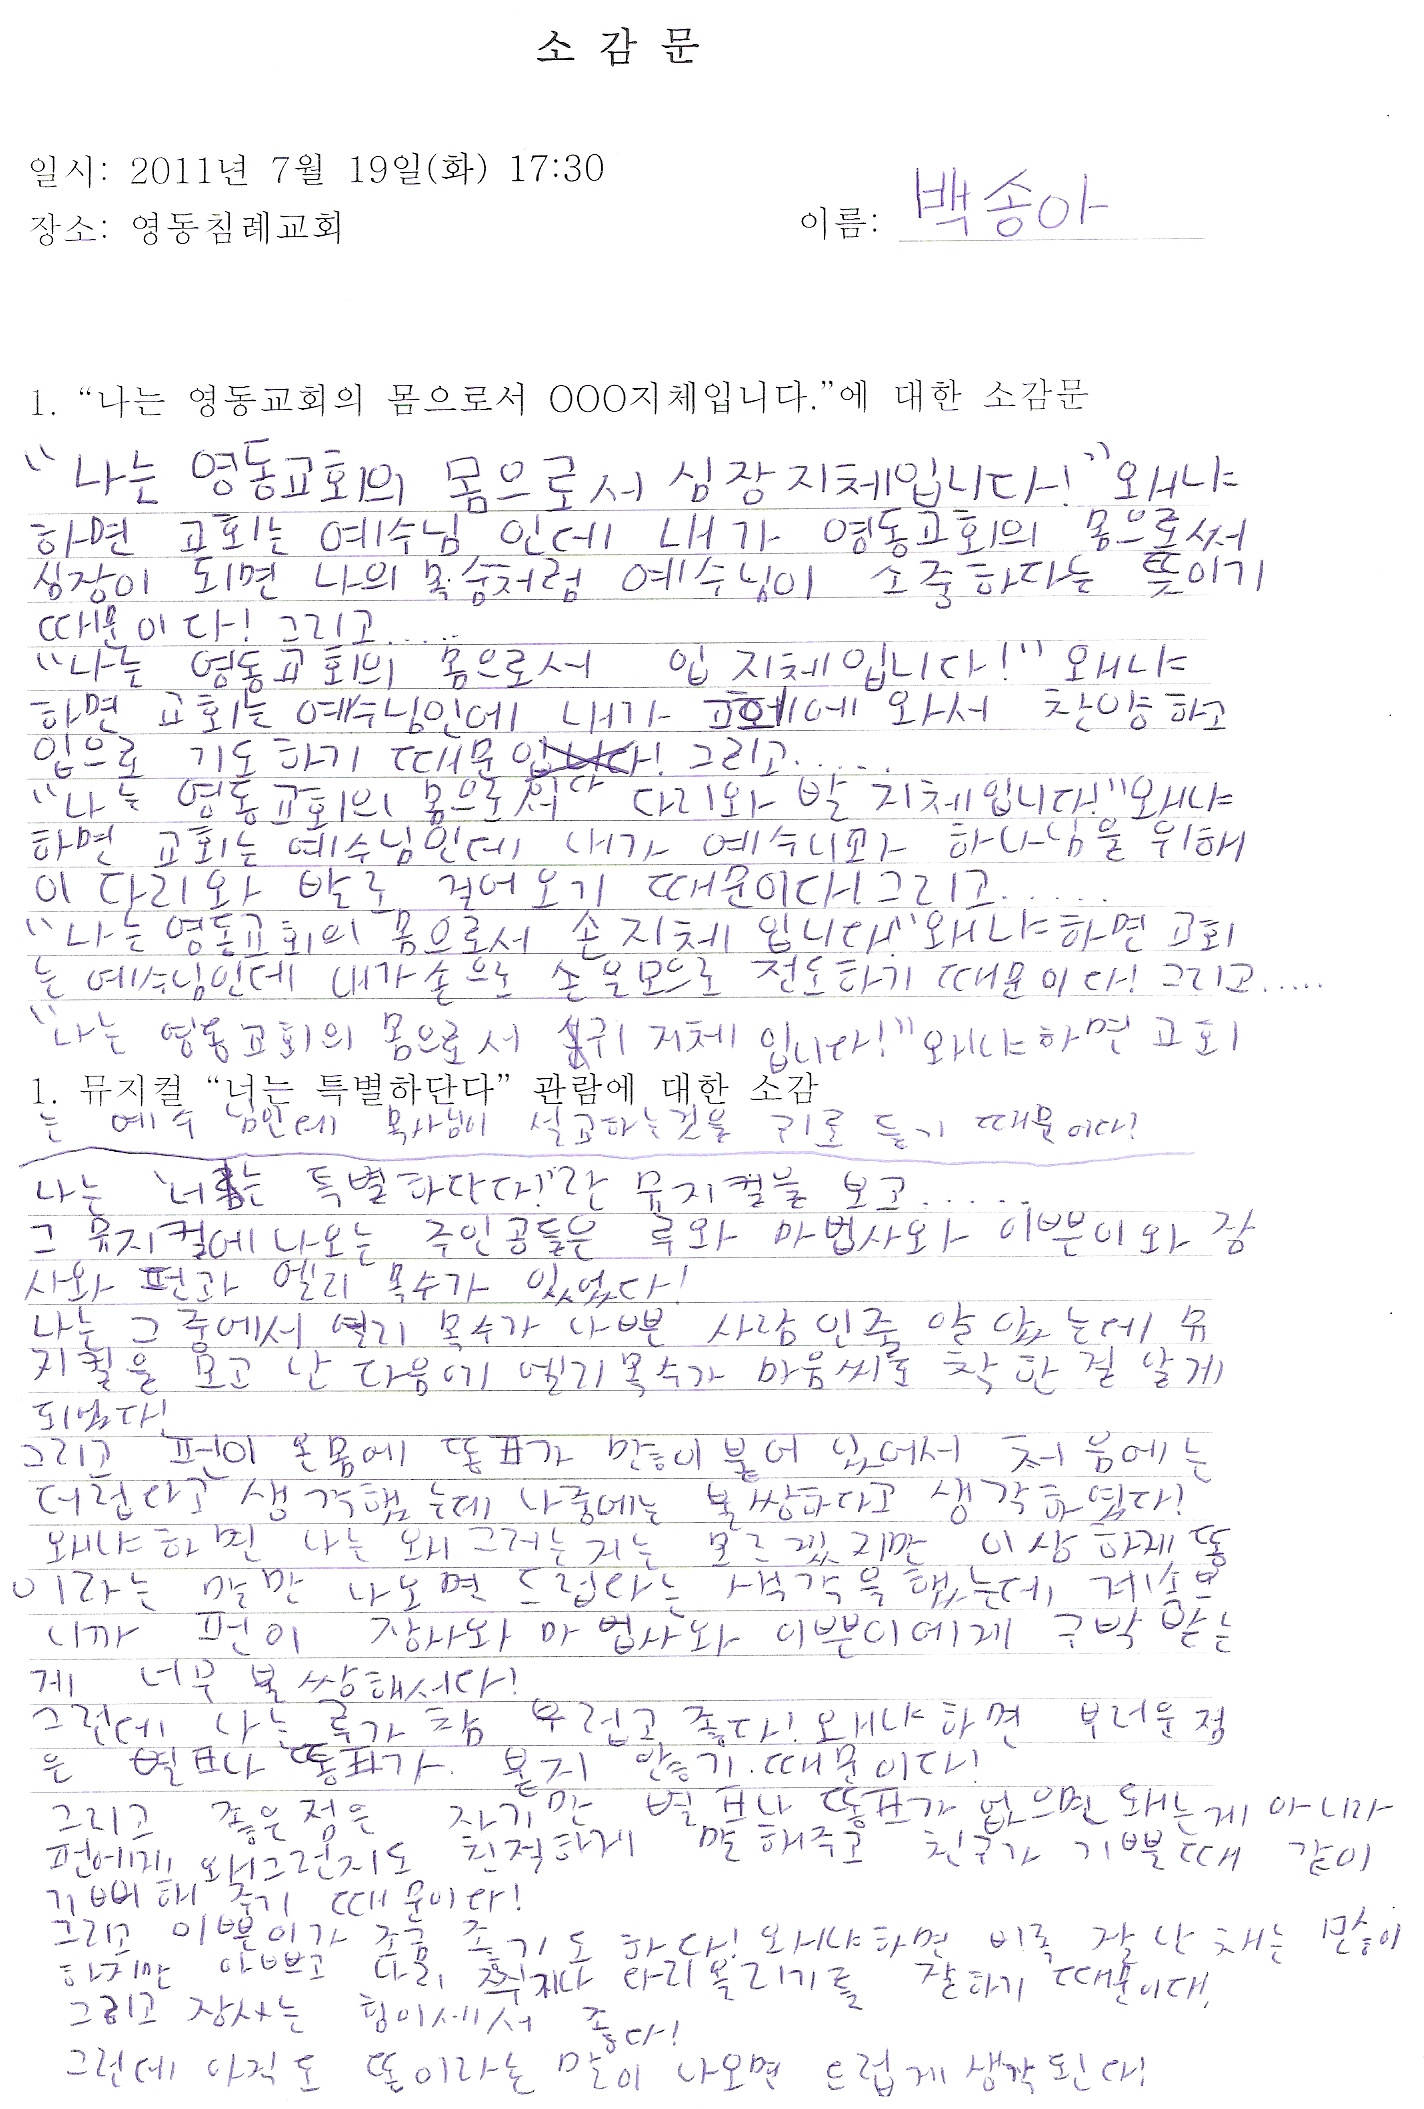 소 감 문
일시: 2011년 7월 19일(화) 17:30
장소: 영동침례교회
이름: 백송아
1. “나는 영동교회의 몸으로서 OOO지체입니다.”에 대한 소감문
"나는 영동교회의 몸으로서 심장지체입니다!" 왜냐
하면 교회는 예수님 인데 내가 영동교회의 몸으로써
심장이 되면 나의 목숨처럼 예수님이 소중하다는 뜻이기
때문이다! 그리고.....
"나는 영동교회의 몸으로서 입 지체입니다!" 왜냐
하면 교회는 예수님인데 내가 교회에 와서 찬양하고
입으로 기도하기 때문이다! 그리고.....
"나는 영동교회의 몸으로서 다리와 발 지체입니다!" 왜냐
하면 교회는 예수님인데 내가 예수님과 하나님을 위해
이 다리와 발로 걸어오기 때문이다! 그리고.....
"나는 영동교회의 몸으로서 손지체 입니다!" 왜냐하면 교회
는 예수님인데 내가 손으로 손을모으로 전도하기 때문이다! 그리고.....
"나는 영동교회의 몸으로서 귀 지체 입니다!" 왜냐하면 교회
1. 뮤지컬 “너는 특별하단다” 관람에 대한 소감
는 예수님인데 목사님이 설교하는것을 귀로 듣기 때문이다!
나는 '너는 특별하단다!'란 뮤지컬을 보고.....
그 뮤지컬에 나오는 주인공들은 루와 마법사와 이쁜이와 장
사와 펀과 엘리 목수가 있었다!
나는 그 중에서 엘리 목수가 나쁜 사람인줄 알았는데 뮤
지컬을 보고 난 다음에 엘리목수가 마음씨도 착한걸 알게
되었다!
그리고 펀이 온몸에 똥표가 많이 붙어 있어서 처음에는
더럽다고 생각했는데 나중에는 불쌍하다고 생각하였다!
왜냐하면 나는 왜그러는지는 모르겠지만 이상하게 똥
이라는 말만 나오면 드럽다는 생각을 했는데 계속보
니까 펀이 장사와 마법사와 이쁜이에게 구박 받는
게 너무 불쌍해서다!
그런데 나는 루가 참 부럽고 좋다! 왜냐하면 부러운 점
은 별표나 똥표가 붙지 않기 때문이다!
그리고 좋은점은 자기만 별표나 똥표가 없으면 돼는게 아니라
펀에게 왜그런지도 친적하게 말해주고 친구가 기쁠때 같이
기뻐해 주기 때문이다!
그리고 이쁜이가 조금 좋기도 하다! 왜냐하면 비록 잘난 채는 많이
하지만 아쁘고 다리 찢지나 다리올리기를 잘하기 때문이다!
그리고 장사는 힘이세서 좋다!
그런데 아직도 똥이라는 말이 나오면 드럽게 생각된다!